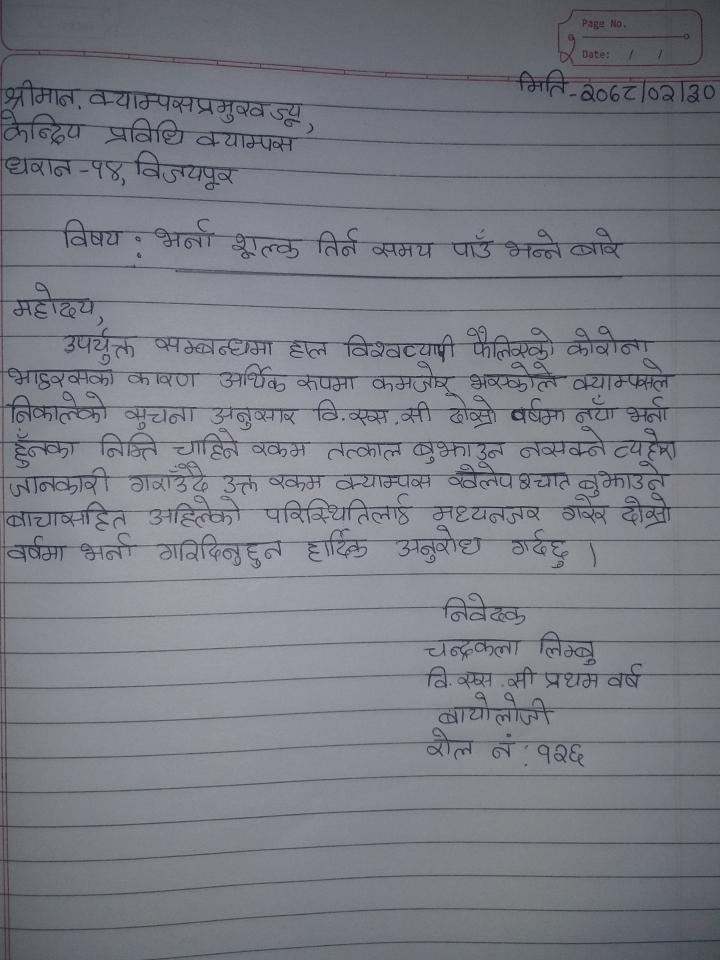 Page No.
Date: / /
मिति-२०६८/०२/३०
श्रीमान्, क्याम्पसप्रमुखज्यू,
केन्द्रिय प्रविधि क्याम्पस
धरान -१४, विजयपूर
विषय : भर्ना शूल्क तिर्न समय पाउँ भन्ने बारे
महोदय,
उपर्युक्त सम्बन्धमा हाल विश्वव्यापी फैलिएको कोरोना
भाइरसका कारण आर्थिक रुपमा कमजोर भएकोले क्याम्पसले
निकालेको सुचना अनुसार वि.एस.सी दोस्रो वर्षमा नयाँ भर्ना
हुँनका निम्ति चाहिने रकम तत्काल बुझाउन नसक्ने व्यहोरा
जानकारी गराउँदै उक्त रकम क्याम्पस खोलेपश्चात बुझाउने
बाचासहित अहिलेको परिस्थितिलाई मध्यनजर गरेर दोस्रो
वर्षमा भर्ना गरिदिनुहुन हार्दिक अनुरोध गर्दछु ।
निवेदक
चन्द्रकला लिम्बु
वि.एस.सी प्रथम वर्ष
बायोलोजी
रोल नं : १२६